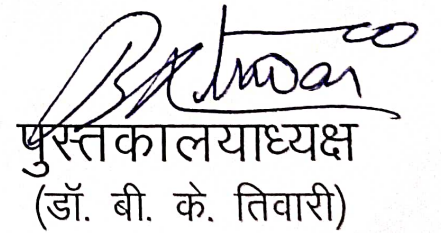 BKTiwari
पुस्तकालयाध्यक्ष
(डॉ. बी. के. तिवारी)